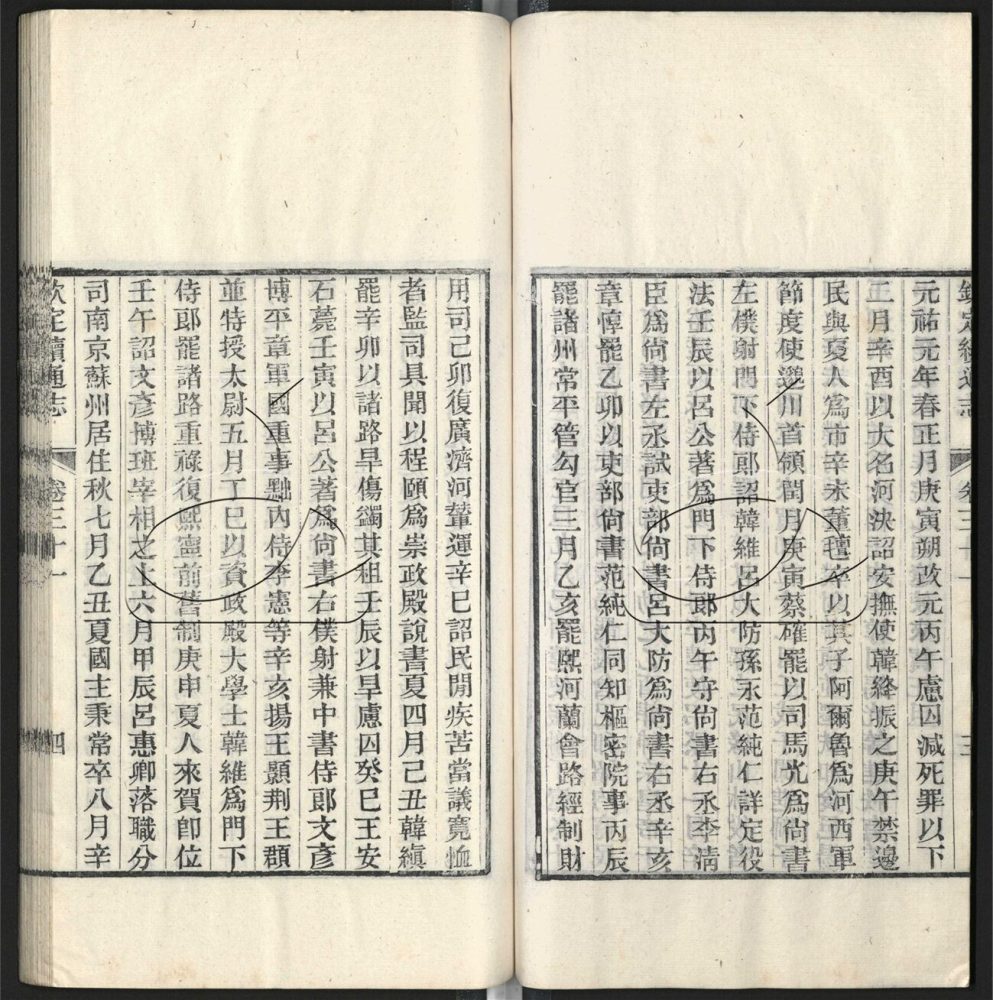 欽定續通志
卷三十一
三
元祐元年春正月庚寅朔改元丙午慮囚減死罪以下
二月辛酉以大名河決詔安撫使韓絳振之庚午禁邊
民與夏人爲市辛未董氊卒以其子阿爾魯爲河西軍
節度使邈川首領閏月庚寅蔡確罷以司馬光爲尙書
左僕射門下侍郎詔韓維呂大防孫永范純仁詳定役
法壬辰以呂公著爲門下侍郎丙午守尙書右丞李淸
臣爲尙書左丞試吏部尙書呂大防爲尙書右丞辛亥
章惇罷乙卯以吏部尙書范純仁同知樞密院事丙辰
罷諸州常平管勾官三月乙亥罷熙河蘭會路經制財
用司己卯復廣濟河輦運辛巳詔民閒疾苦當議寬恤
者監司具聞以程頤爲崇政殿說書夏四月己丑韓縝
罷辛卯以諸路旱傷蠲其租壬辰以旱慮囚癸巳王安
石薨壬寅以呂公著爲尙書右僕射兼中書侍郎文彥
博平章軍國重事黜內侍李憲等辛亥揚王顥荆王頵
並特授太尉五月丁巳以資政殿大學士韓維爲門下
侍郎罷諸路重祿復熙寧前舊制庚申夏人來賀卽位
壬午詔文彥博班宰相之上六月甲辰呂惠卿落職分
司南京蘇州居住秋七月乙丑夏國主秉常卒八月辛
欽定續通志
卷三十一
四